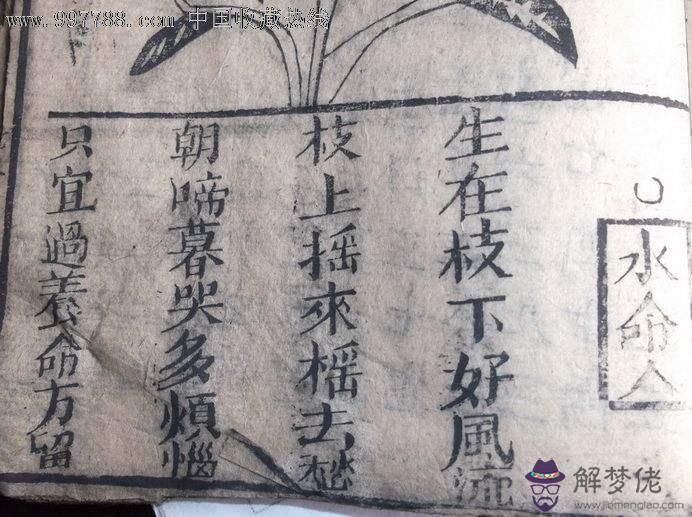 www.997788.com 中国收藏热线
水命人
生在枝下好風流
枝上摇來榣去愁
朝啼暮哭多煩惱
只宜過養命方留
解梦佬
www.jiemenglao.com